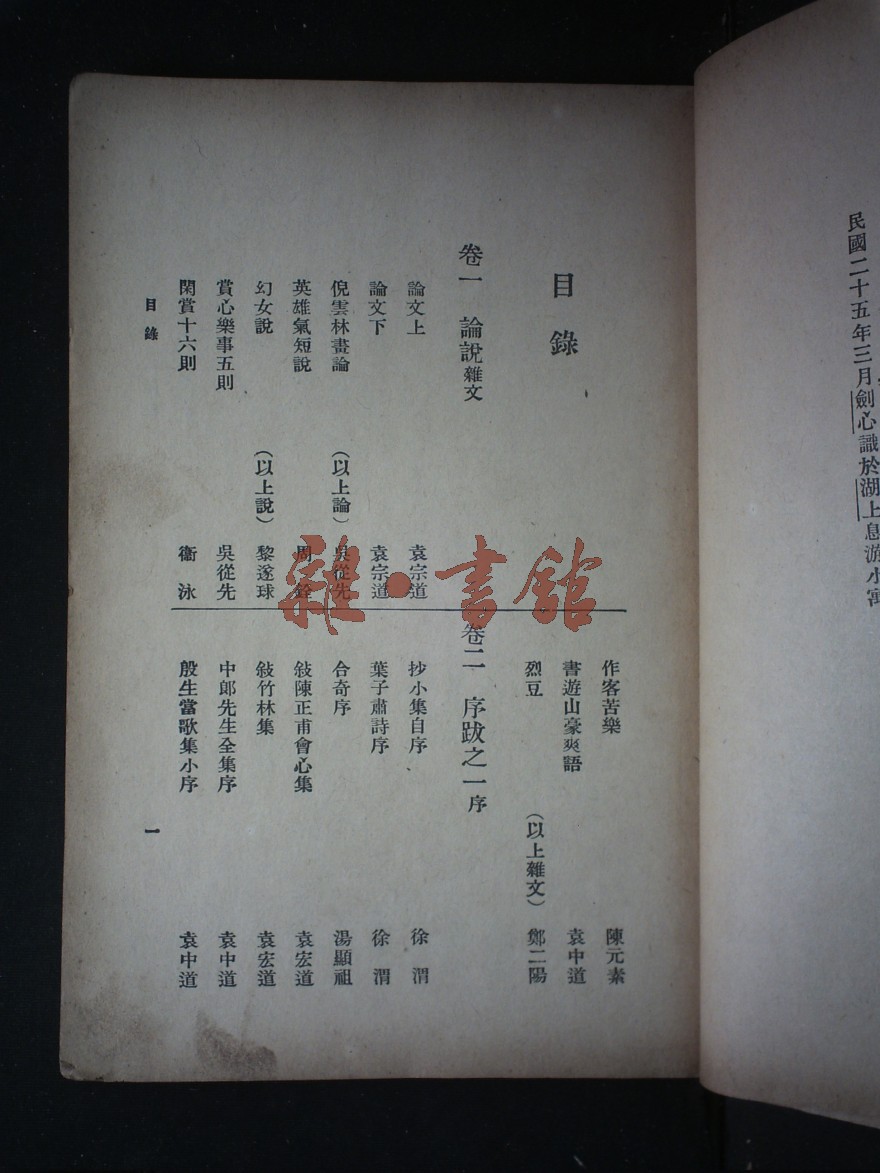 民國二十五年三月劍心識於湖上息游小寓
目錄
卷一 論說雜文
論文上 袁宗道
論文下 袁宗道
倪雲林畫論 (以上論) 吳從先
英雄氣短說 周銓
幻女說 (以上說) 黎遂球
賞心樂事五則 吳從先
閑賞十六則 衞泳
作客苦樂 陳元素
書遊山豪爽語 袁中道
烈豆 (以上雜文) 鄭二陽
卷二 序跋之一序
抄小集自序 徐渭
葉子肅詩序 徐渭
合奇序 湯顯祖
敍陳正甫會心集 袁宏道
敍竹林集 袁宏道
中郎先生全集序 袁中道
殷生當歌集小序 袁中道
目錄
一
雜·書館